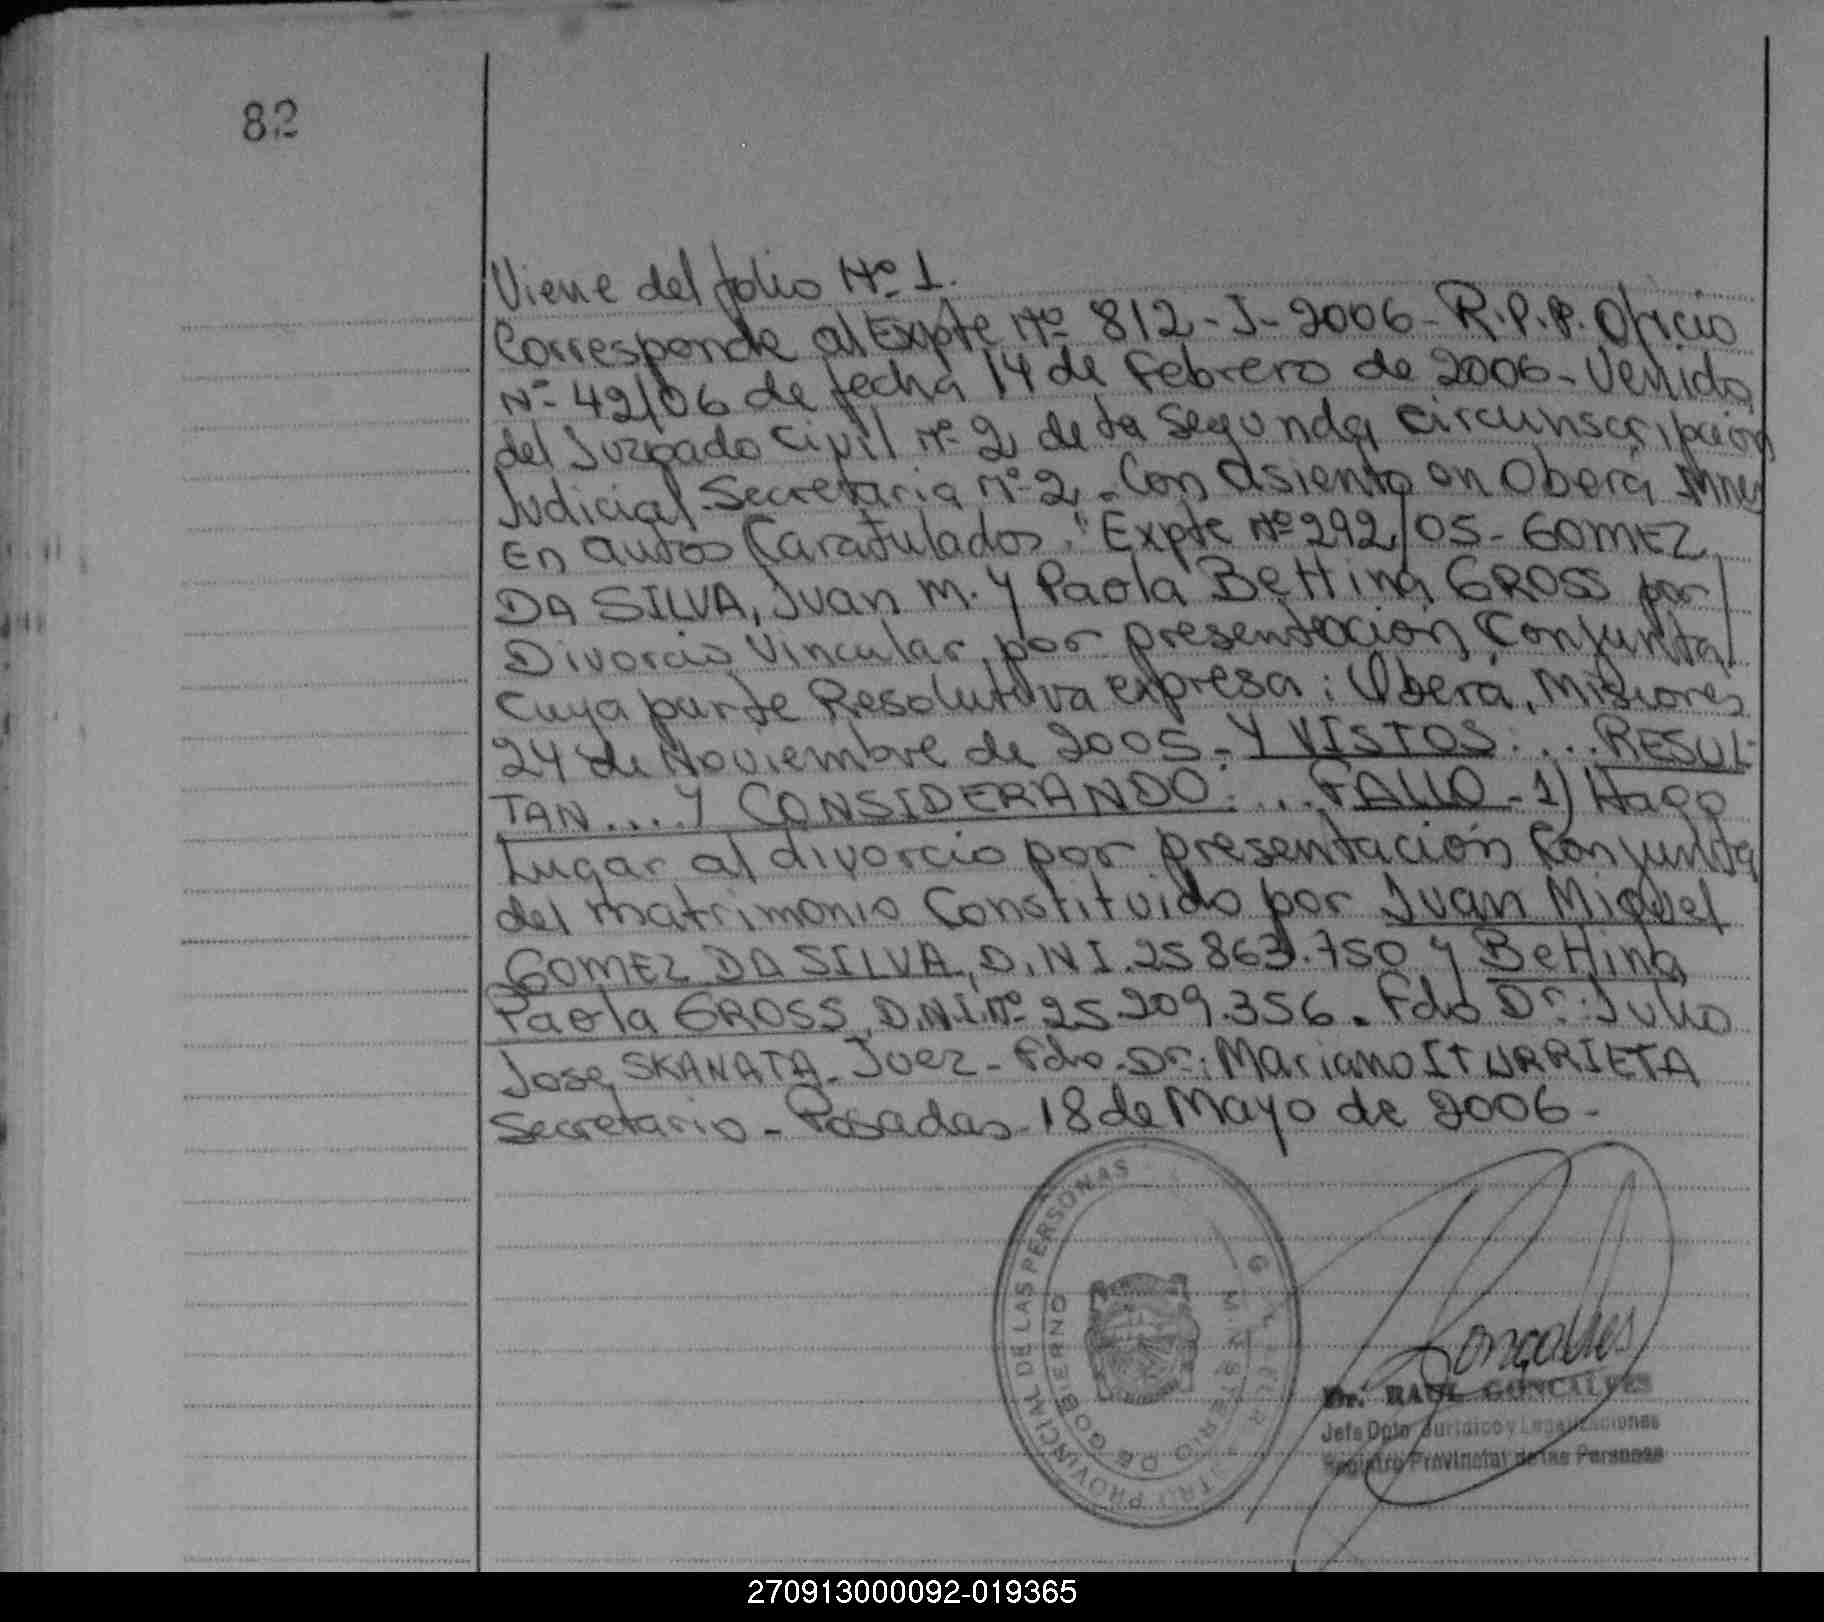 82
Viene del folio Nº 1.
Corresponde al Expte Nº 812-J-2006-R.P.P. Oficio
Nº 42/06 de fecha 14 de Febrero de 2006-Venido
del Juzgado Civil nº 2 de la Segunda circunscripción
Judicial-Secretaria nº 2. Con Asiento en Oberá Mnes
En autos Caratulados: "Expte Nº 292/05-GOMEZ
DA SILVA, Juan M. y Paola Bettina GROSS por
Divorcio Vincular por presentación Conjunta
Cuya parte Resolutiva expresa: Oberá, Misiones
24 de Noviembre de 2005-Y VISTOS:...RESUL-
TAN....Y CONSIDERANDO:...FALLO-1) Hago
Lugar al divorcio por presentación Conjunta
del matrimonio Constituido por Juan Miguel
GOMEZ DA SILVA, D.N.I. 25863.750 y Bettina
Paola GROSS, D.N.I.Nº 25.209.356. Fdo Dr. Julio
Jose SKANATA-Juez-Fdo.Dr: Mariano ITURRIETA
Secretario-Posadas 18 de Mayo de 2006-
PROVINCIAL DE LAS PERSONAS
MINISTERIO DE GOBIERNO
Goncalves
Dr. RAUL GONCALVES
Jefe Dpto Jurídico y Legalizaciones
Registro Provincial de las Personas
270913000092-019365